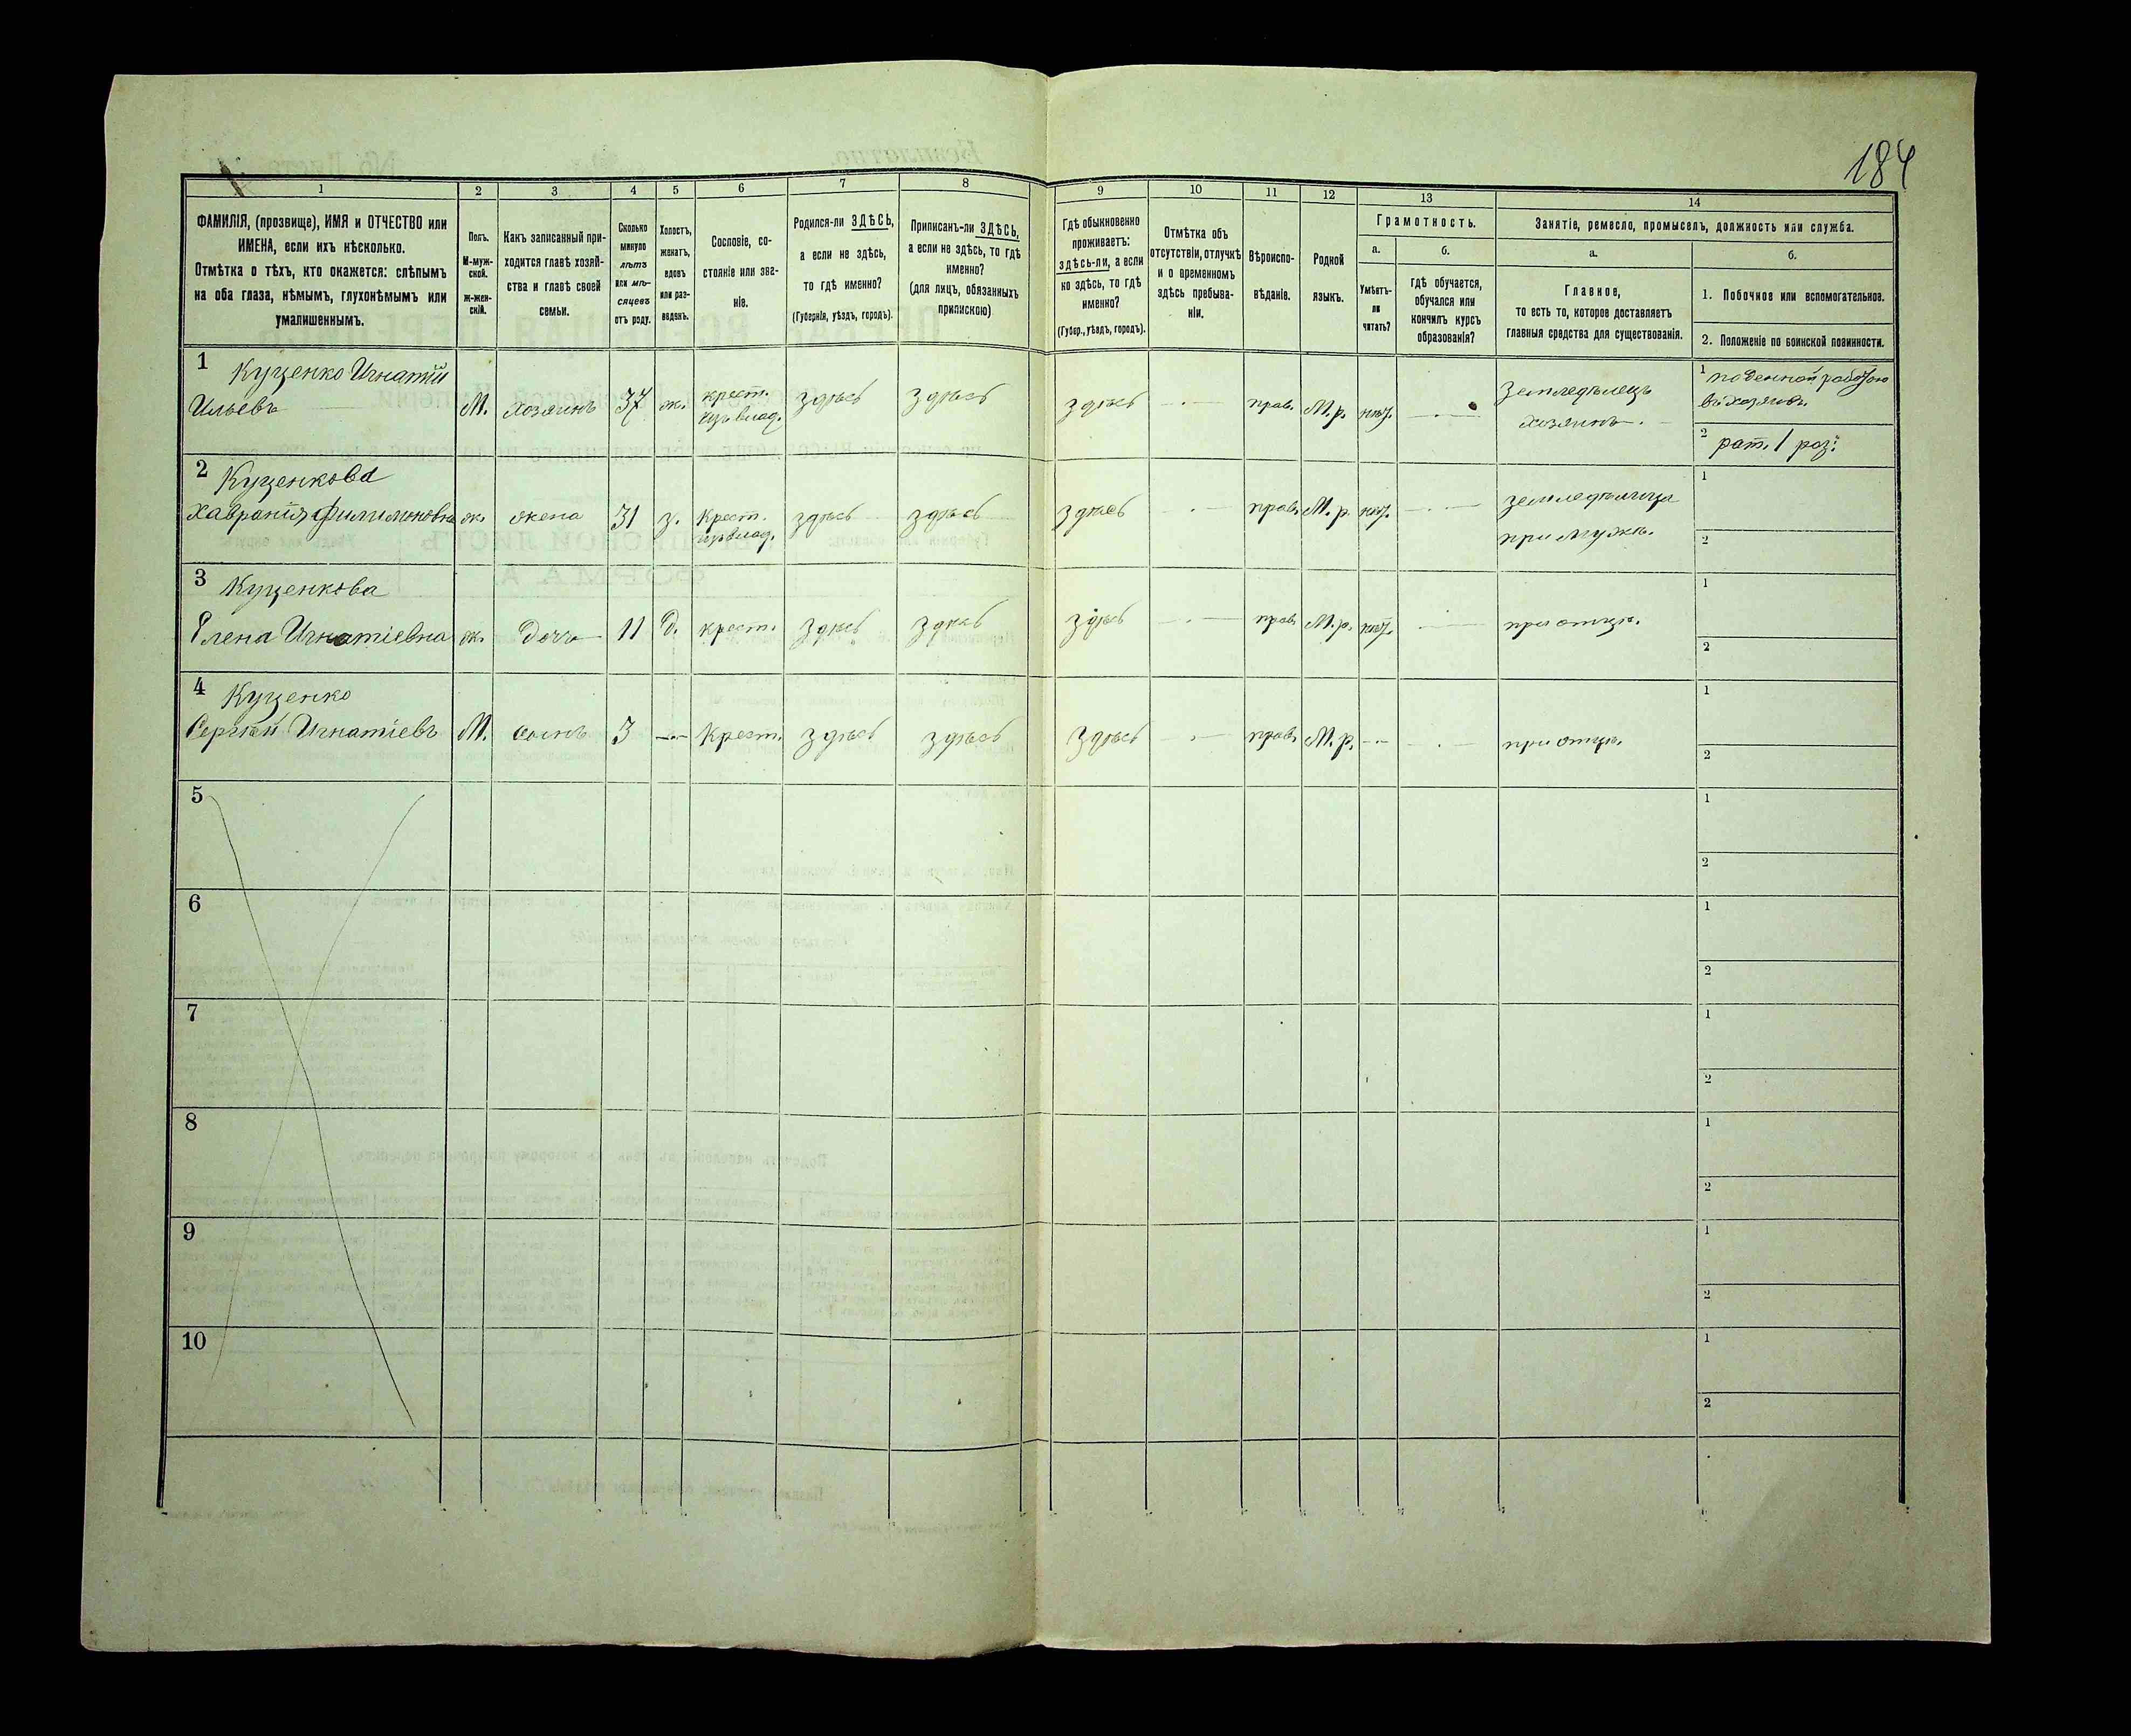 184
1 2 3 4 5 6 7 8 9 10 11 12 13 14
ФАМИЛІЯ, (прозвище), ИМЯ и ОТЧЕСТВО или
ИМЕНА, если ихъ нѣсколько.
Отмѣтка о тѣхъ, кто окажется: слѣпымъ
на оба глаза, нѣмымъ, глухонѣмымъ или
умалишеннымъ.
Полъ.
М-муж-
ской.
ж-жен-
скій.
Какъ записанный при-
ходится главѣ хозяй-
ства и главѣ своей
семьи.
Сколько
минуло
лѣтъ
или мѣ-
сяцевъ
отъ роду.
Холостъ,
женатъ,
вдовъ
или раз-
веденъ.
Сословіе, со-
стояніе или зва-
ніе.
Родился-ли ЗДѢСЬ,
а если не здѣсь,
то гдѣ именно?
(Губернія, уѣздъ, городъ).
Приписанъ-ли ЗДѢСЬ,
а если не здѣсь, то гдѣ
именно?
(для лицъ, обязанныхъ
припискою)
Гдѣ обыкновенно
проживаетъ:
здѣсь-ли, а если
не здѣсь, то гдѣ
именно?
(Губер., уѣздъ, городъ).
Отмѣтка объ
отсутствіи, отлучкѣ
и о временномъ
здѣсь пребыва-
ніи.
Вѣроиспо-
вѣданіе.
Родной
языкъ.
Грамотность.
а. б.
Умѣетъ-
ли
читать?
гдѣ обучается,
обучался или
кончилъ курсъ
образованія?
Занятіе, ремесло, промыселъ, должность или служба.
а. б.
Главное,
то есть то, которое доставляетъ
главныя средства для существованія.
1. Побочное или вспомогательное.
2. Положеніе по воинской повинности.
1 Куценко Игнатій
Ильевъ М. хозяинъ 37 ж. крест. изъ влад. здѣсь здѣсь здѣсь прав. М.р. нѣт. Земледѣлецъ хозяинъ.
1 поденной работою
2 рат. 1 раз:
2 Куценкова
Хавронія Филимоновна ж. жена 31 з. Крест. изъ влад. здѣсь здѣсь здѣсь прав. М.р. нѣт. земледѣлица при мужѣ.
1
2
3 Куценкова
Елена Игнатіевна ж. дочь 11 д. крест. здѣсь здѣсь здѣсь прав. М.р. нѣт. при отцѣ.
1
2
4 Куценко
Сергѣй Игнатіевъ М. сынъ 3 Крест. здѣсь здѣсь здѣсь прав. М.р. при отцѣ.
1
2
5
1
2
6
1
2
7
1
2
8
1
2
9
1
2
10
1
2